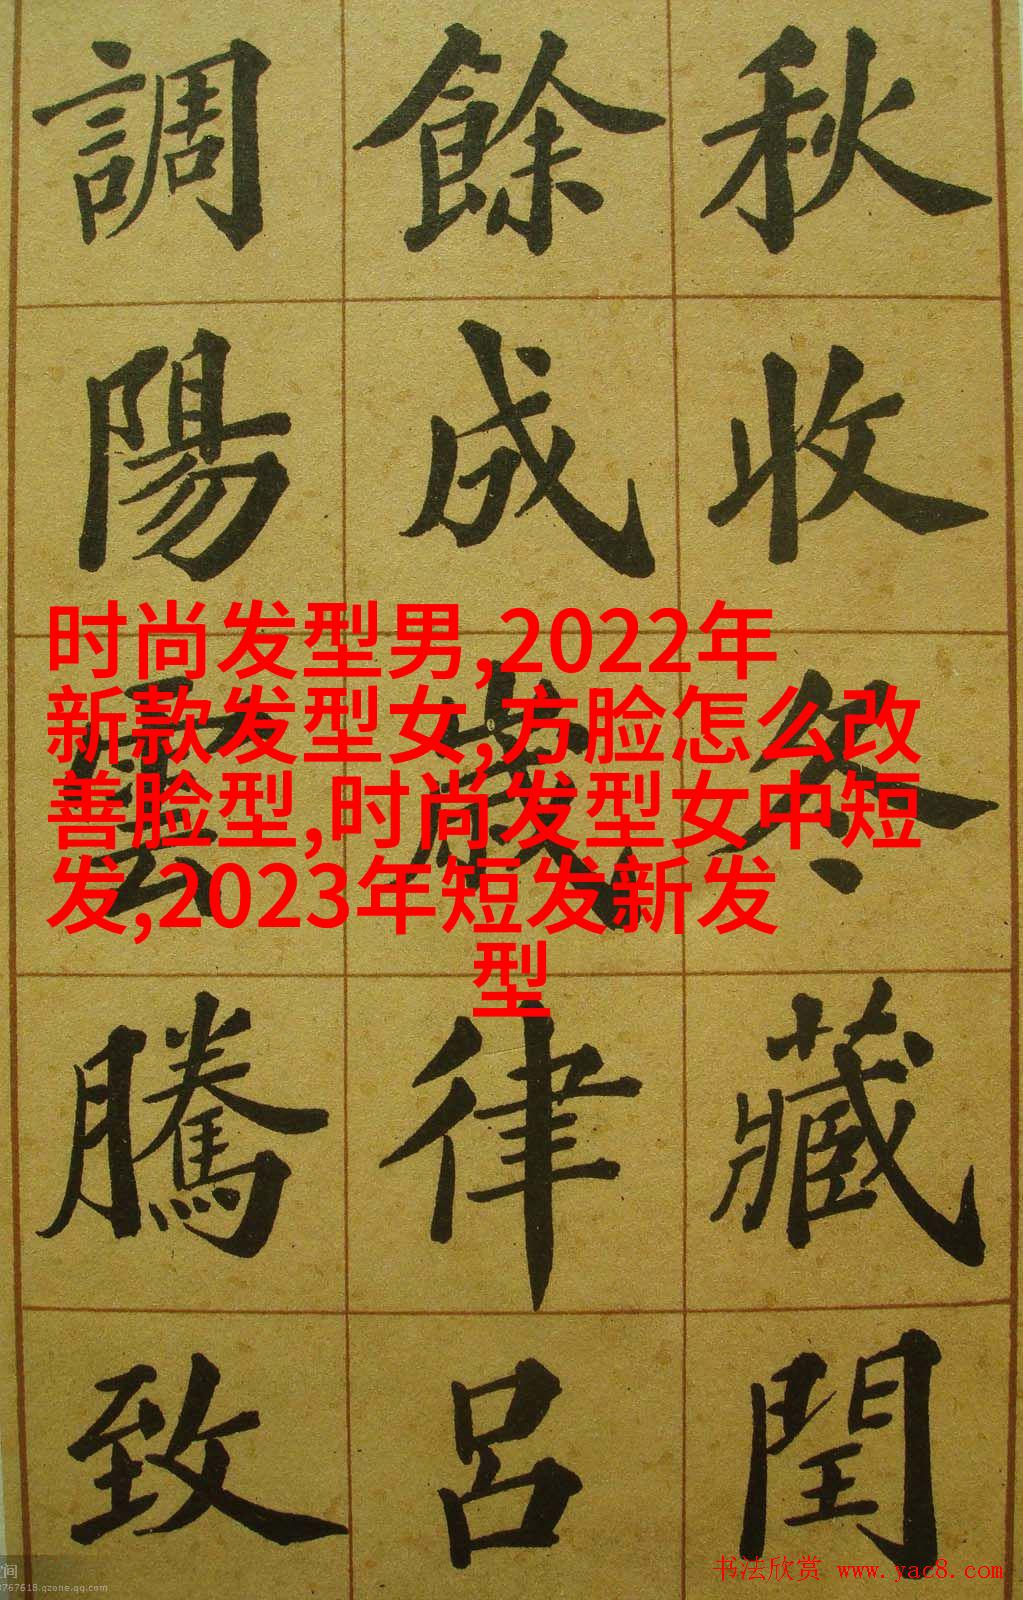 秋收冬藏閏
餘成歲律呂
調陽雲騰致
时尚发型男,2022年
新款发型女,方脸怎么改
善脸型,时尚发型女中短
发,2023年短发新发
型
书法欣赏 www.yac8.com
空间
3767618.qzone.qq.com